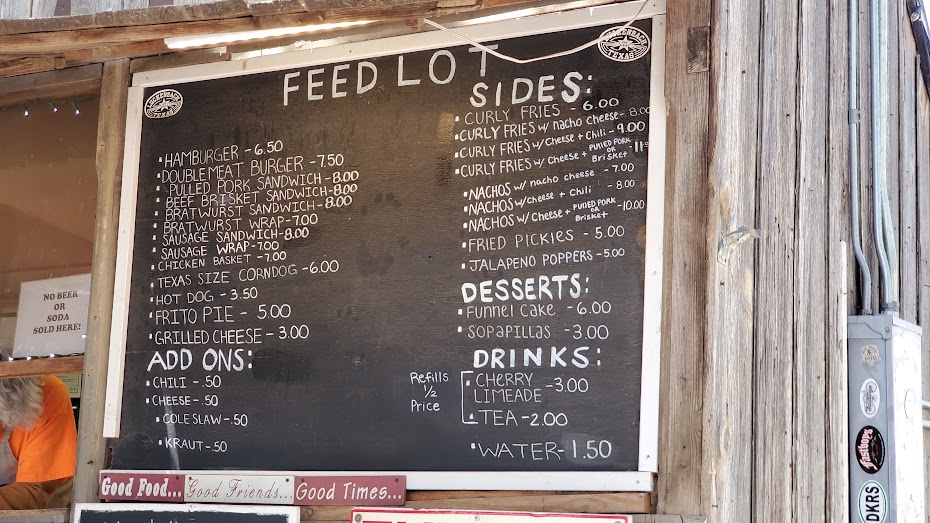 FEED LOT
LUCKENBACH
TEXAS
LUCKENBACH
TEXAS
• HAMBURGER - 6.50
• DOUBLE MEAT BURGER - 7.50
• PULLED PORK SANDWICH - 8.00
• BEEF BRISKET SANDWICH - 8.00
• BRATWURST SANDWICH - 8.00
• BRATWURST WRAP - 7.00
• SAUSAGE SANDWICH - 8.00
• SAUSAGE WRAP - 7.00
• CHICKEN BASKET - 7.00
• TEXAS SIZE CORNDOG - 6.00
• HOT DOG - 3.50
• FRITO PIE - 5.00
• GRILLED CHEESE - 3.00
ADD ONS:
• CHILI - .50
• CHEESE - .50
• COLE SLAW - .50
• KRAUT - .50
SIDES:
• CURLY FRIES - 6.00
• CURLY FRIES w/ nacho cheese - 8.00
• CURLY FRIES w/ Cheese + Chili - 9.00
• CURLY FRIES w/ Cheese + PULLED PORK OR Brisket - 11.
• NACHOS w/ nacho cheese - 7.00
• NACHOS w/ cheese + Chili - 8.00
• NACHOS w/ Cheese + PULLED PORK OR Brisket - 10.00
• FRIED PICKIES - 5.00
• JALAPENO POPPERS - 5.00
DESSERTS:
• Funnel Cake - 6.00
• SOPAPILLAS - 3.00
DRINKS:
• CHERRY LIMEADE - 3.00
• TEA - 2.00
Refills
1/2
Price
• WATER - 1.50
NO BEER
OR
SODA
SOLD HERE!
Good Food... Good Friends... Good Times...
Fastbops
DKRS